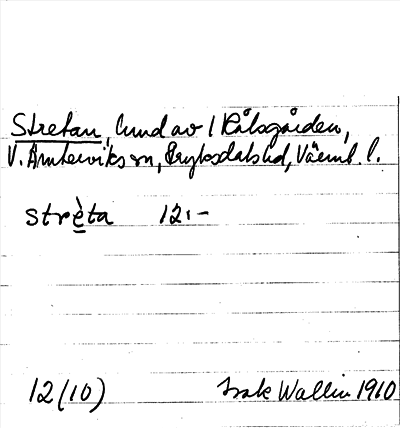 Stretan, lund av 1 Rålsgården,
V. Ämterviks sn, Fryksdals hd, Värml. l.
strèta 12:-
12 (10) Isak Wallin 1910